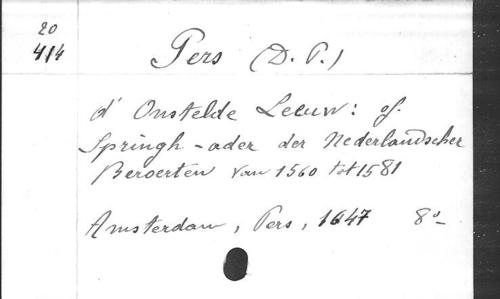 20
414
Pers (D. P.)
d' Onstelde Leeuw: of.
Springh-ader der Nederlandscher
Beroerten van 1560 tot 1581
Amsterdam, Pers, 1647 8º